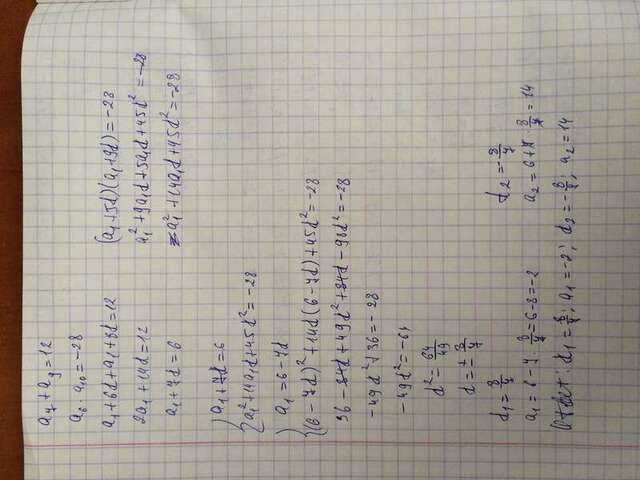 a₇ + a₉ = 12
a₆ · a₁₀ = -28
a₁ + 6d + a₁ + 8d = 12
2a₁ + 14d = 12
a₁ + 7d = 6
(a₁ + 5d)(a₁ + 9d) = -28
a₁² + 9a₁d + 5a₁d + 45d² = -28
a₁² + 14a₁d + 45d² = -28
a₁ + 7d = 6
a₁² + 14a₁d + 45d² = -28
a₁ = 6 - 7d
(6 - 7d)² + 14d(6 - 7d) + 45d² = -28
36 - 84d + 49d² + 84d - 98d² = -28
-49d² + 36 = -28
-49d² = -64
d² = 64/49
d = ± 8/7
d₁ = 8/7
d₂ = -8/7
a₁ = 6 - 7 · 8/7 = 6 - 8 = -2
a₂ = 6 + 7 · 8/7 = 14
Ответ: d₁ = 8/7; a₁ = -2; d₂ = -8/7; a₂ = 14